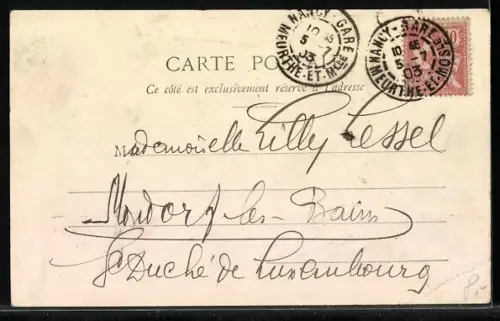 CARTE POSTALE
Ce côté est exclusivement réservé à l'adresse
NANCY-GARE
10 45
5 -7
03
MEURTHE-ET-MLLE
NANCY-GARE
5 -7
03
MEURTHE-ET-MOSELLE
Mademoiselle Lilly Lessel
Mondorf les-Bains
Gd Duché de Luxembourg
8,-